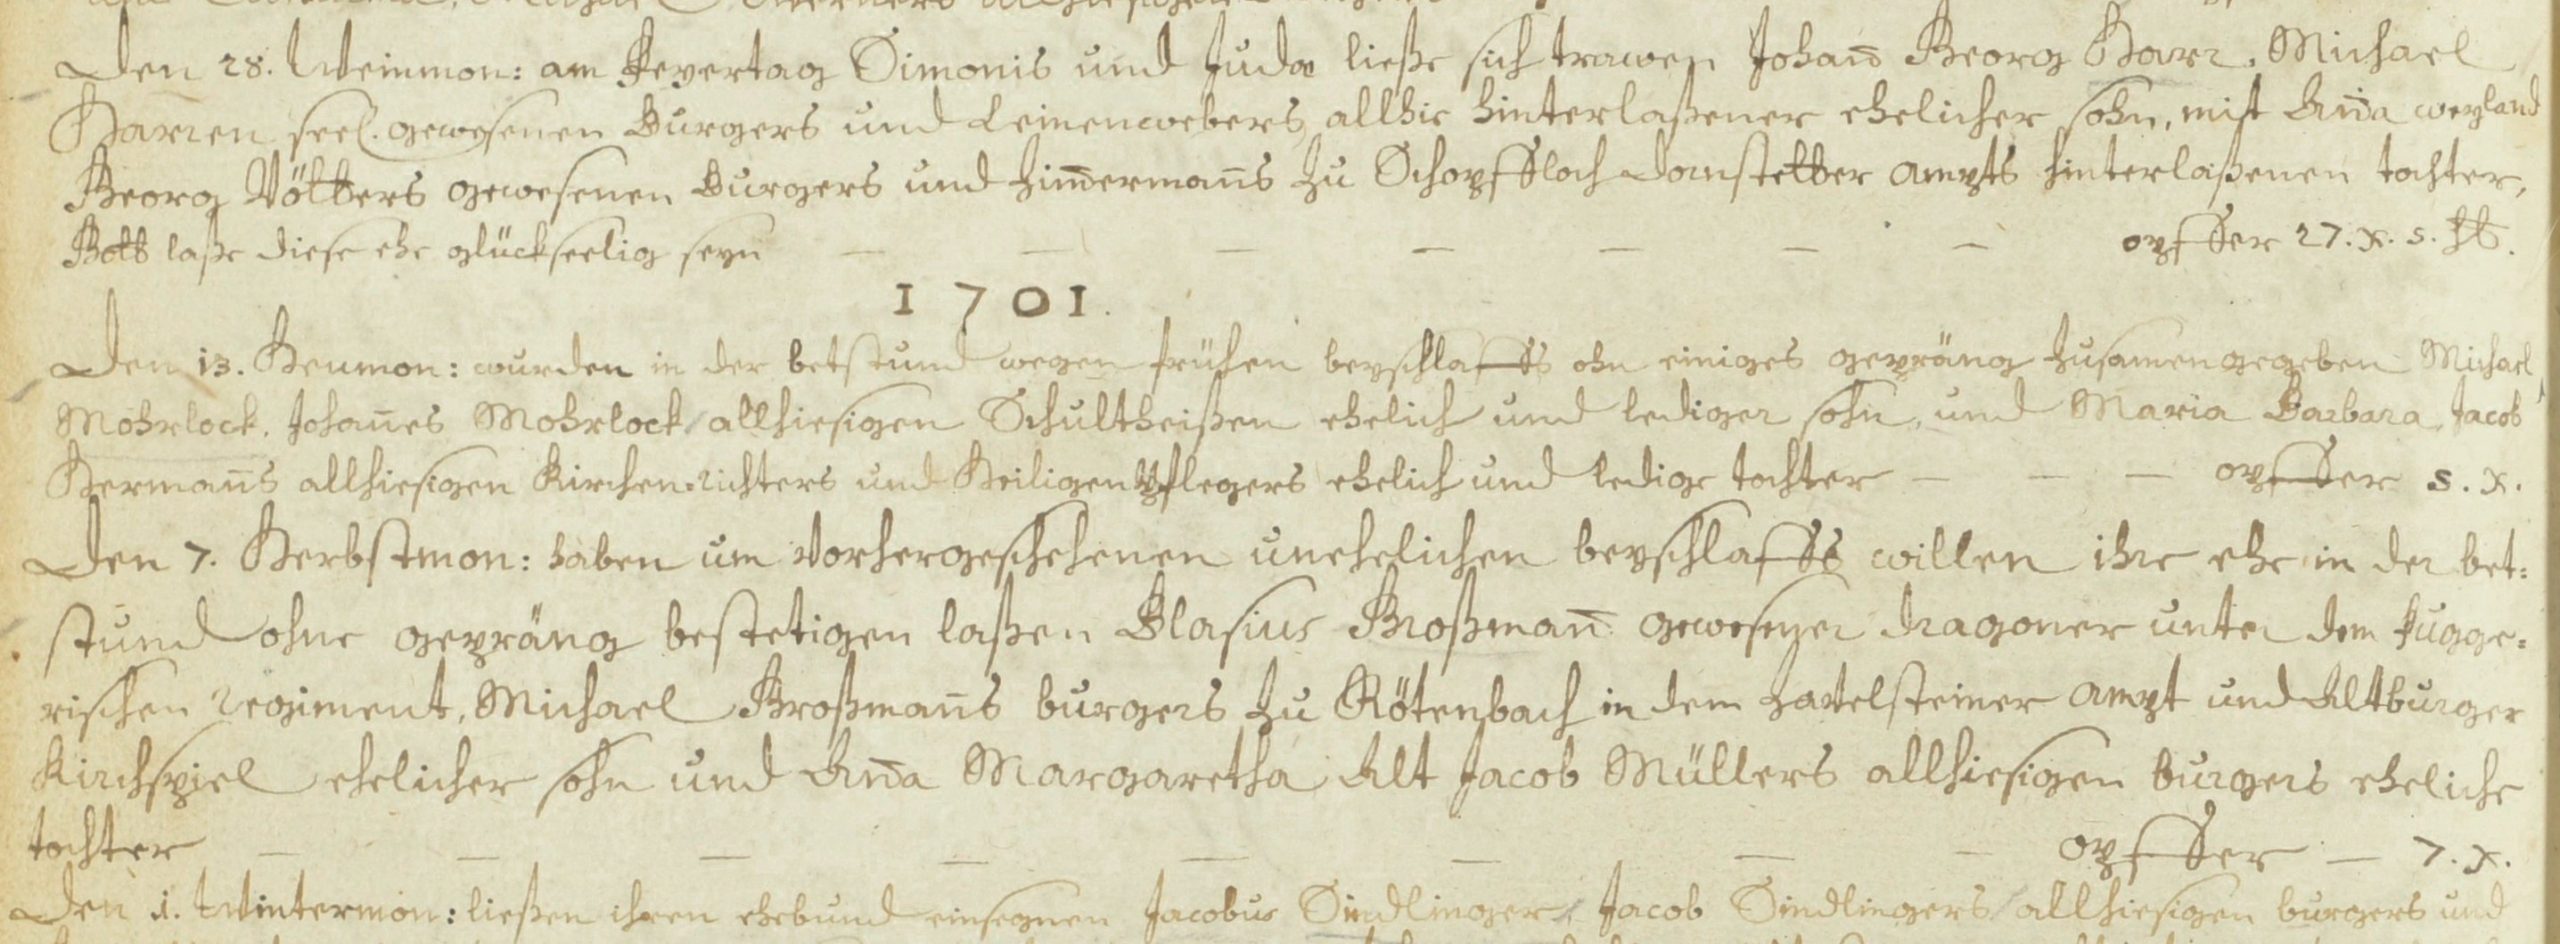 Den 28. Weinmon: am Feyertag Simonis und Judæ ließe sich trawen Johan̄ Georg Harr, Michael
Harren seel. gewesenen Burgers und Leinenwebers allhie hinterlaßener ehelicher sohn, mit An̄a weyland
Georg Völters gewesenen Burgers und Zim̄ermans̄ zu Schopffloch Dornstetter ampts hinterlaßenen tochter,
Gott laße diese ehe glückseelig seyn — — — — — — — opffer 27. x. 5. hlr.
1701.
Den 13. Heumon: wurden in der betstund wegen frühen beyschlaffs ohn einiges gepräng zusamen gegeben Michael
Mohrlock, Johan̄es Mohrlock allhiesigen Schultheißen ehelich und lediger sohn, und Maria Barbara, Jacob
Herman̄s allhiesigen Kirchen-richters und Heiligenpflegers ehelich und ledige tochter — — — opffer 5. x.
Den 7. Herbstmon: haben um vorhergeschehenen unehelichen beyschlaffs willen ihre ehe in der bet-
stund ohne gepräng bestetigen laßen Blasius Großman̄ gewesener dragoner unter dem Fugge-
rischen regiment, Michael Großman̄s burgers zu Rötenbach in dem Zavelsteiner ampt und Altburger
Kirchspiel ehelicher sohn und An̄a Margaretha Alt Jacob Müllers allhiesigen burgers eheliche
tochter — — — — — — — — opffer — 7. x.
Den 1. Wintermon: ließen ihren ehebund einsegnen Jacobus Sindlinger, Jacob Sindlingers allhiesigen burgers und